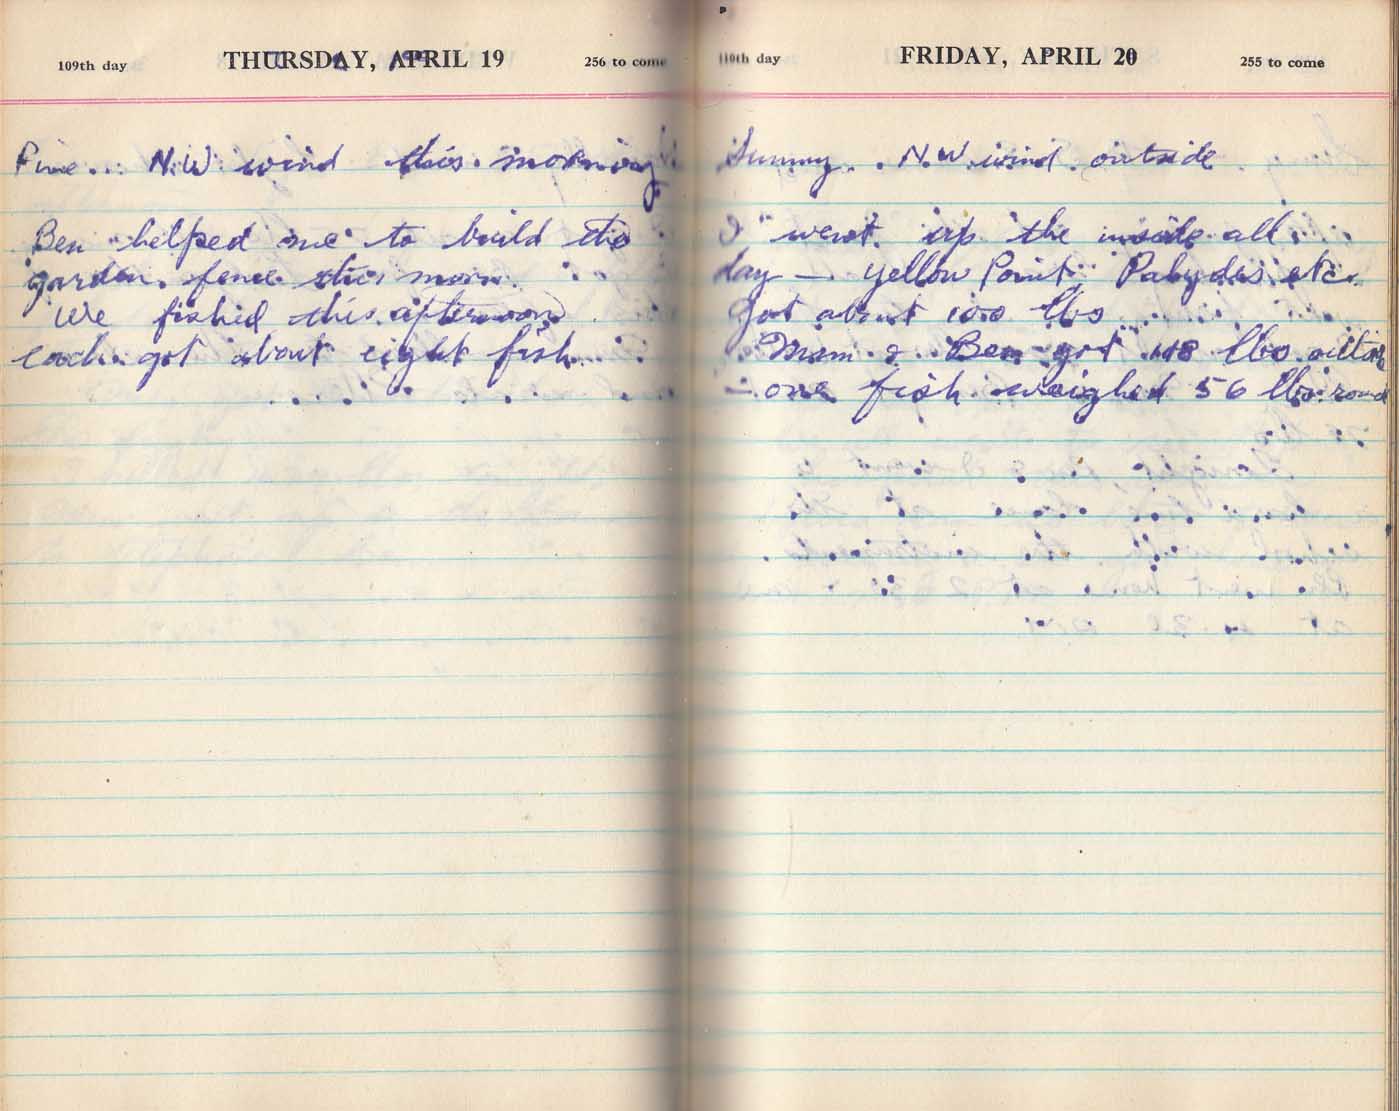 109th day THURSDAY, APRIL 19 256 to come
Fine... N.W. wind this morning.
Ben helped me to build the
garden fence this morn.
We fished this afternoon
each got about eight fish.
110th day FRIDAY, APRIL 20 255 to come
Sunny. N.W. wind outside
I went up the inside all
day — Yellow Point, etc.
Got about 100 lbs
Mom & Ben got lbs. outside
— one fish weighed 56 lbs. round